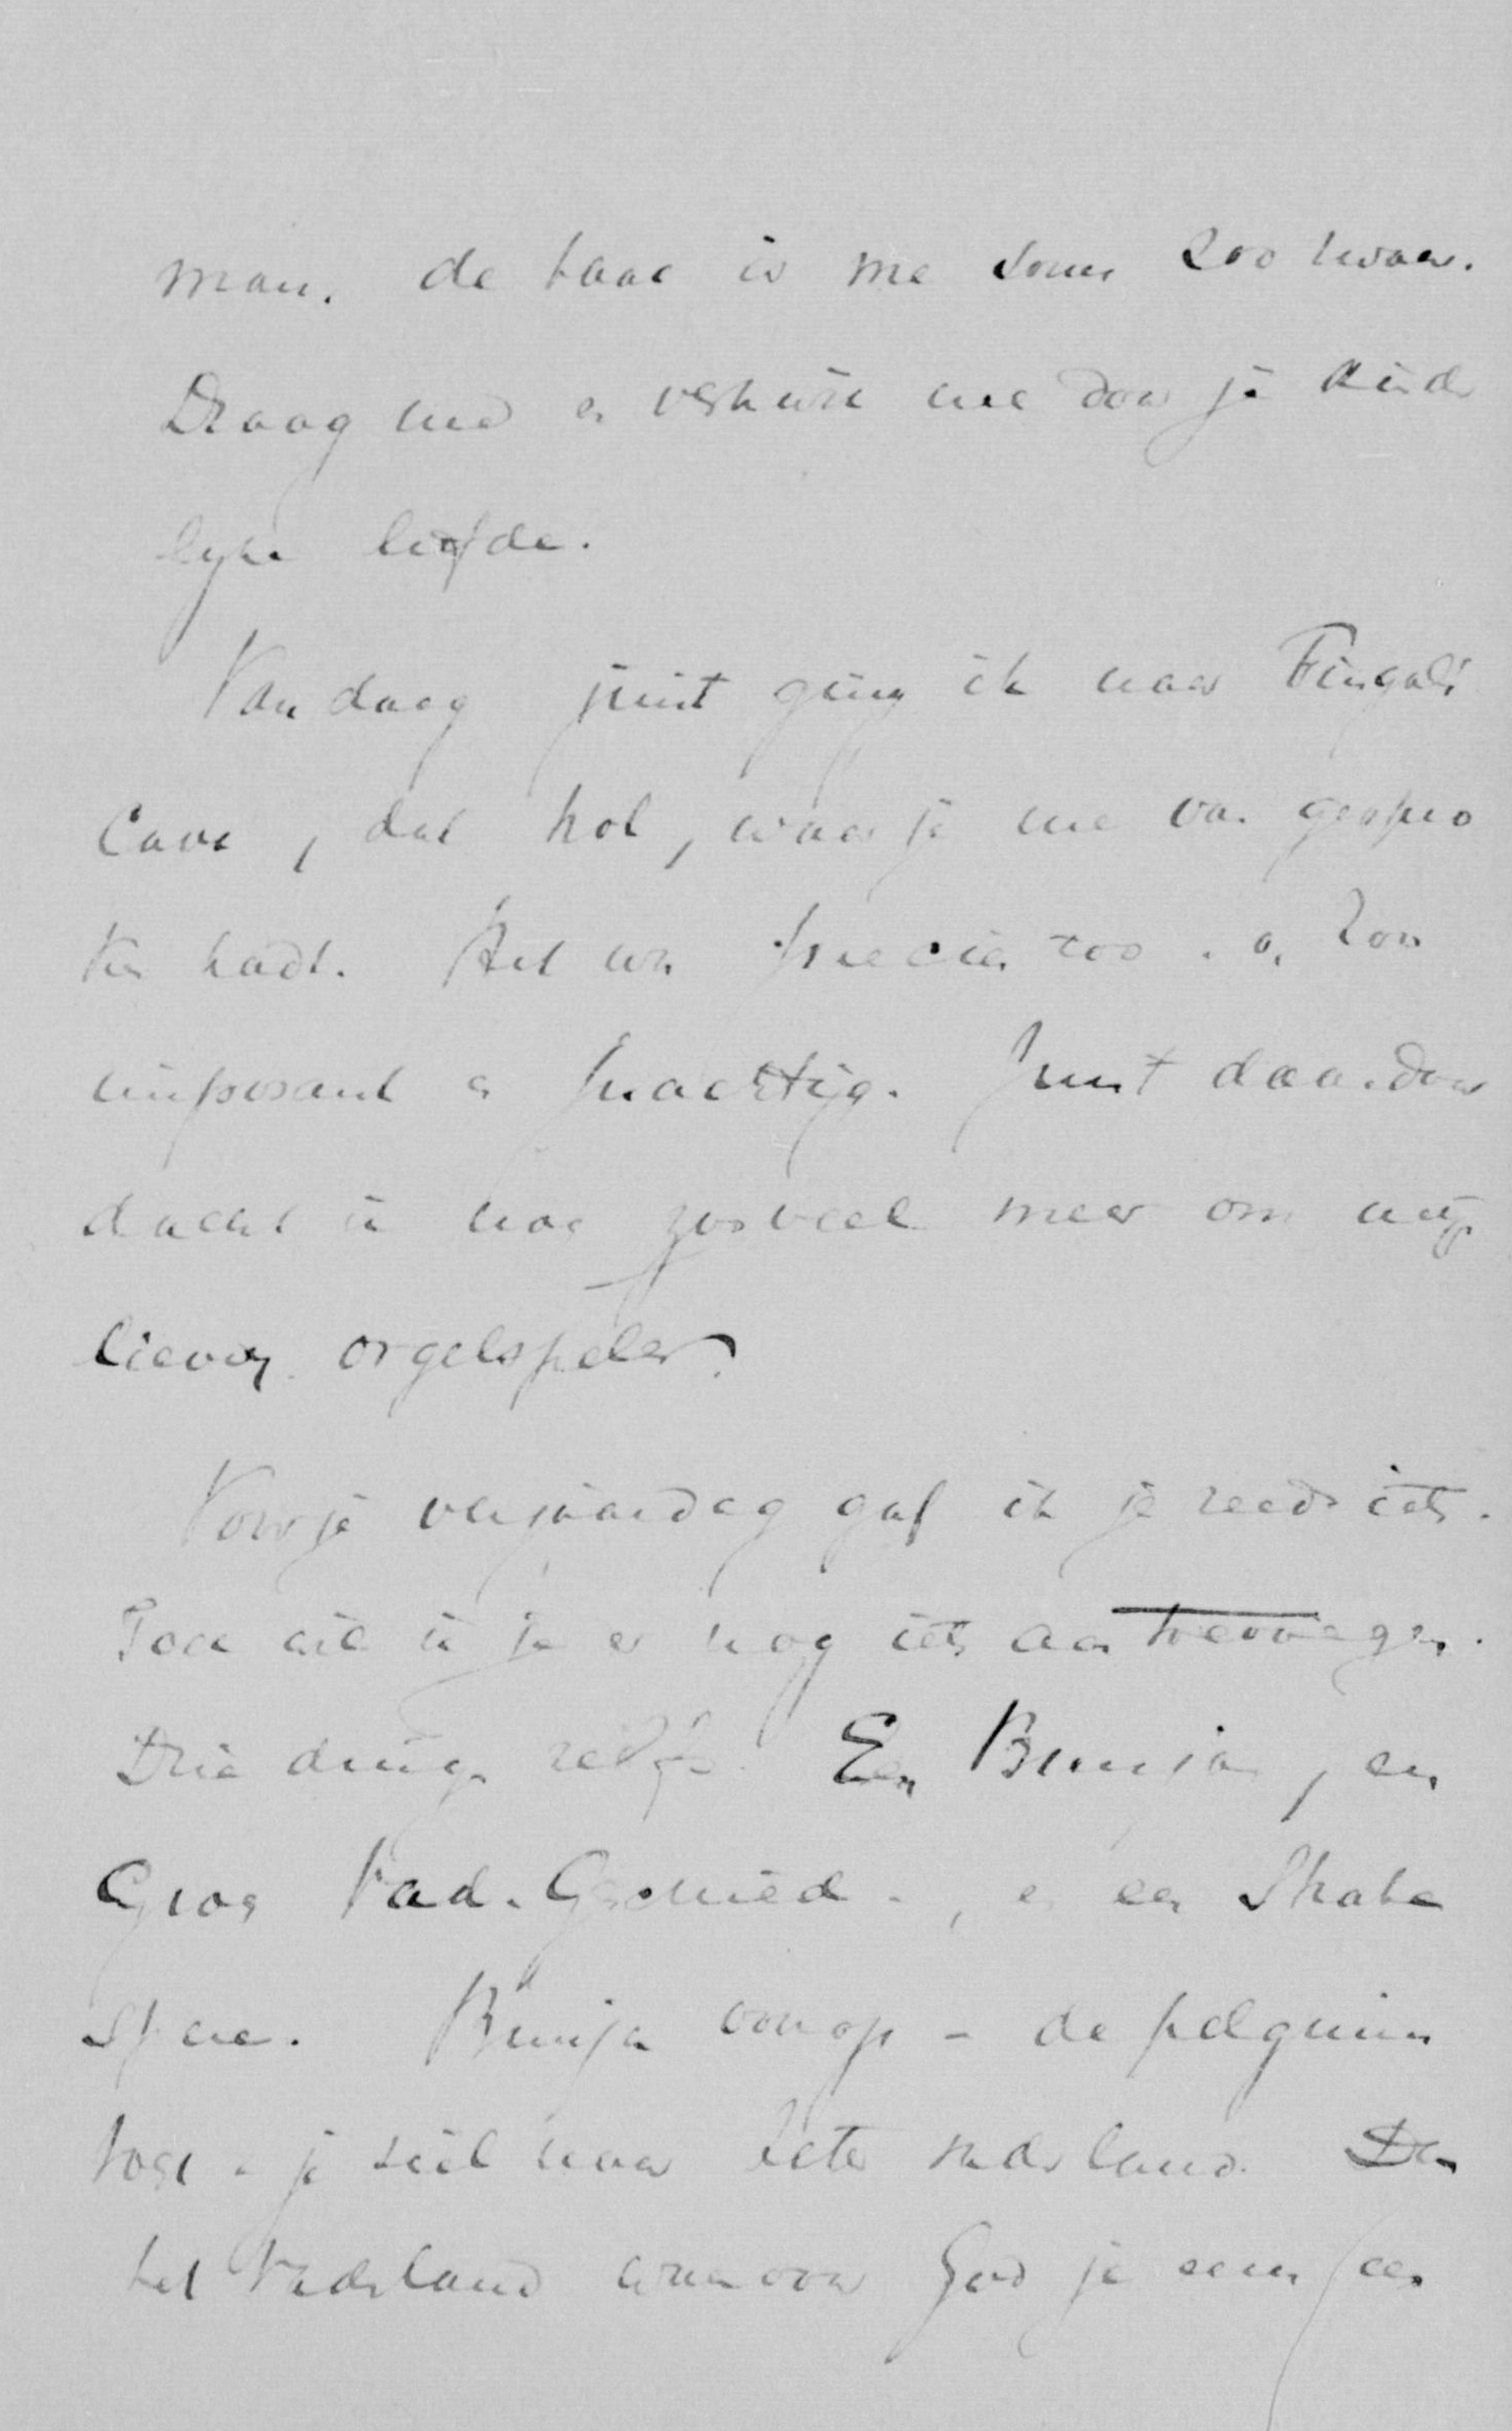 man. de taak is me soms zoo zwaar.
Draag me en verkwik me door je kinder
lyke liefde.
Vandaag juist ging ik naar Fingals
Cave, dat hol, waar je me van gespro
ken hadt. Het was precies zoo. o, zoo
imposant en prachtig. Juist daardoor
dacht ik nog zooveel meer om mijn
lieven orgelspeler.
Voor je verjaardag gaf ik je reeds iets.
Toch wil ik je er nog iets aan toevoegen.
Drie dingen zelfs. Een Bunjan, een
Groen Vad. Geschied., en een Shake
speare. Bunjan voorop - de pelgrims
tocht je ziel naar beter vaderland. Dan
het Vaderland waarvoor God je eens een